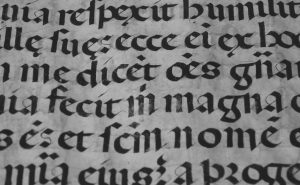 nia respexit humilit
illę suę: ecce ei ex hoc
n me dicēt oēs gn̄a
ia fecit m̄ magna q
s ē: et scm̄ nomē e
mīa eius: a proge